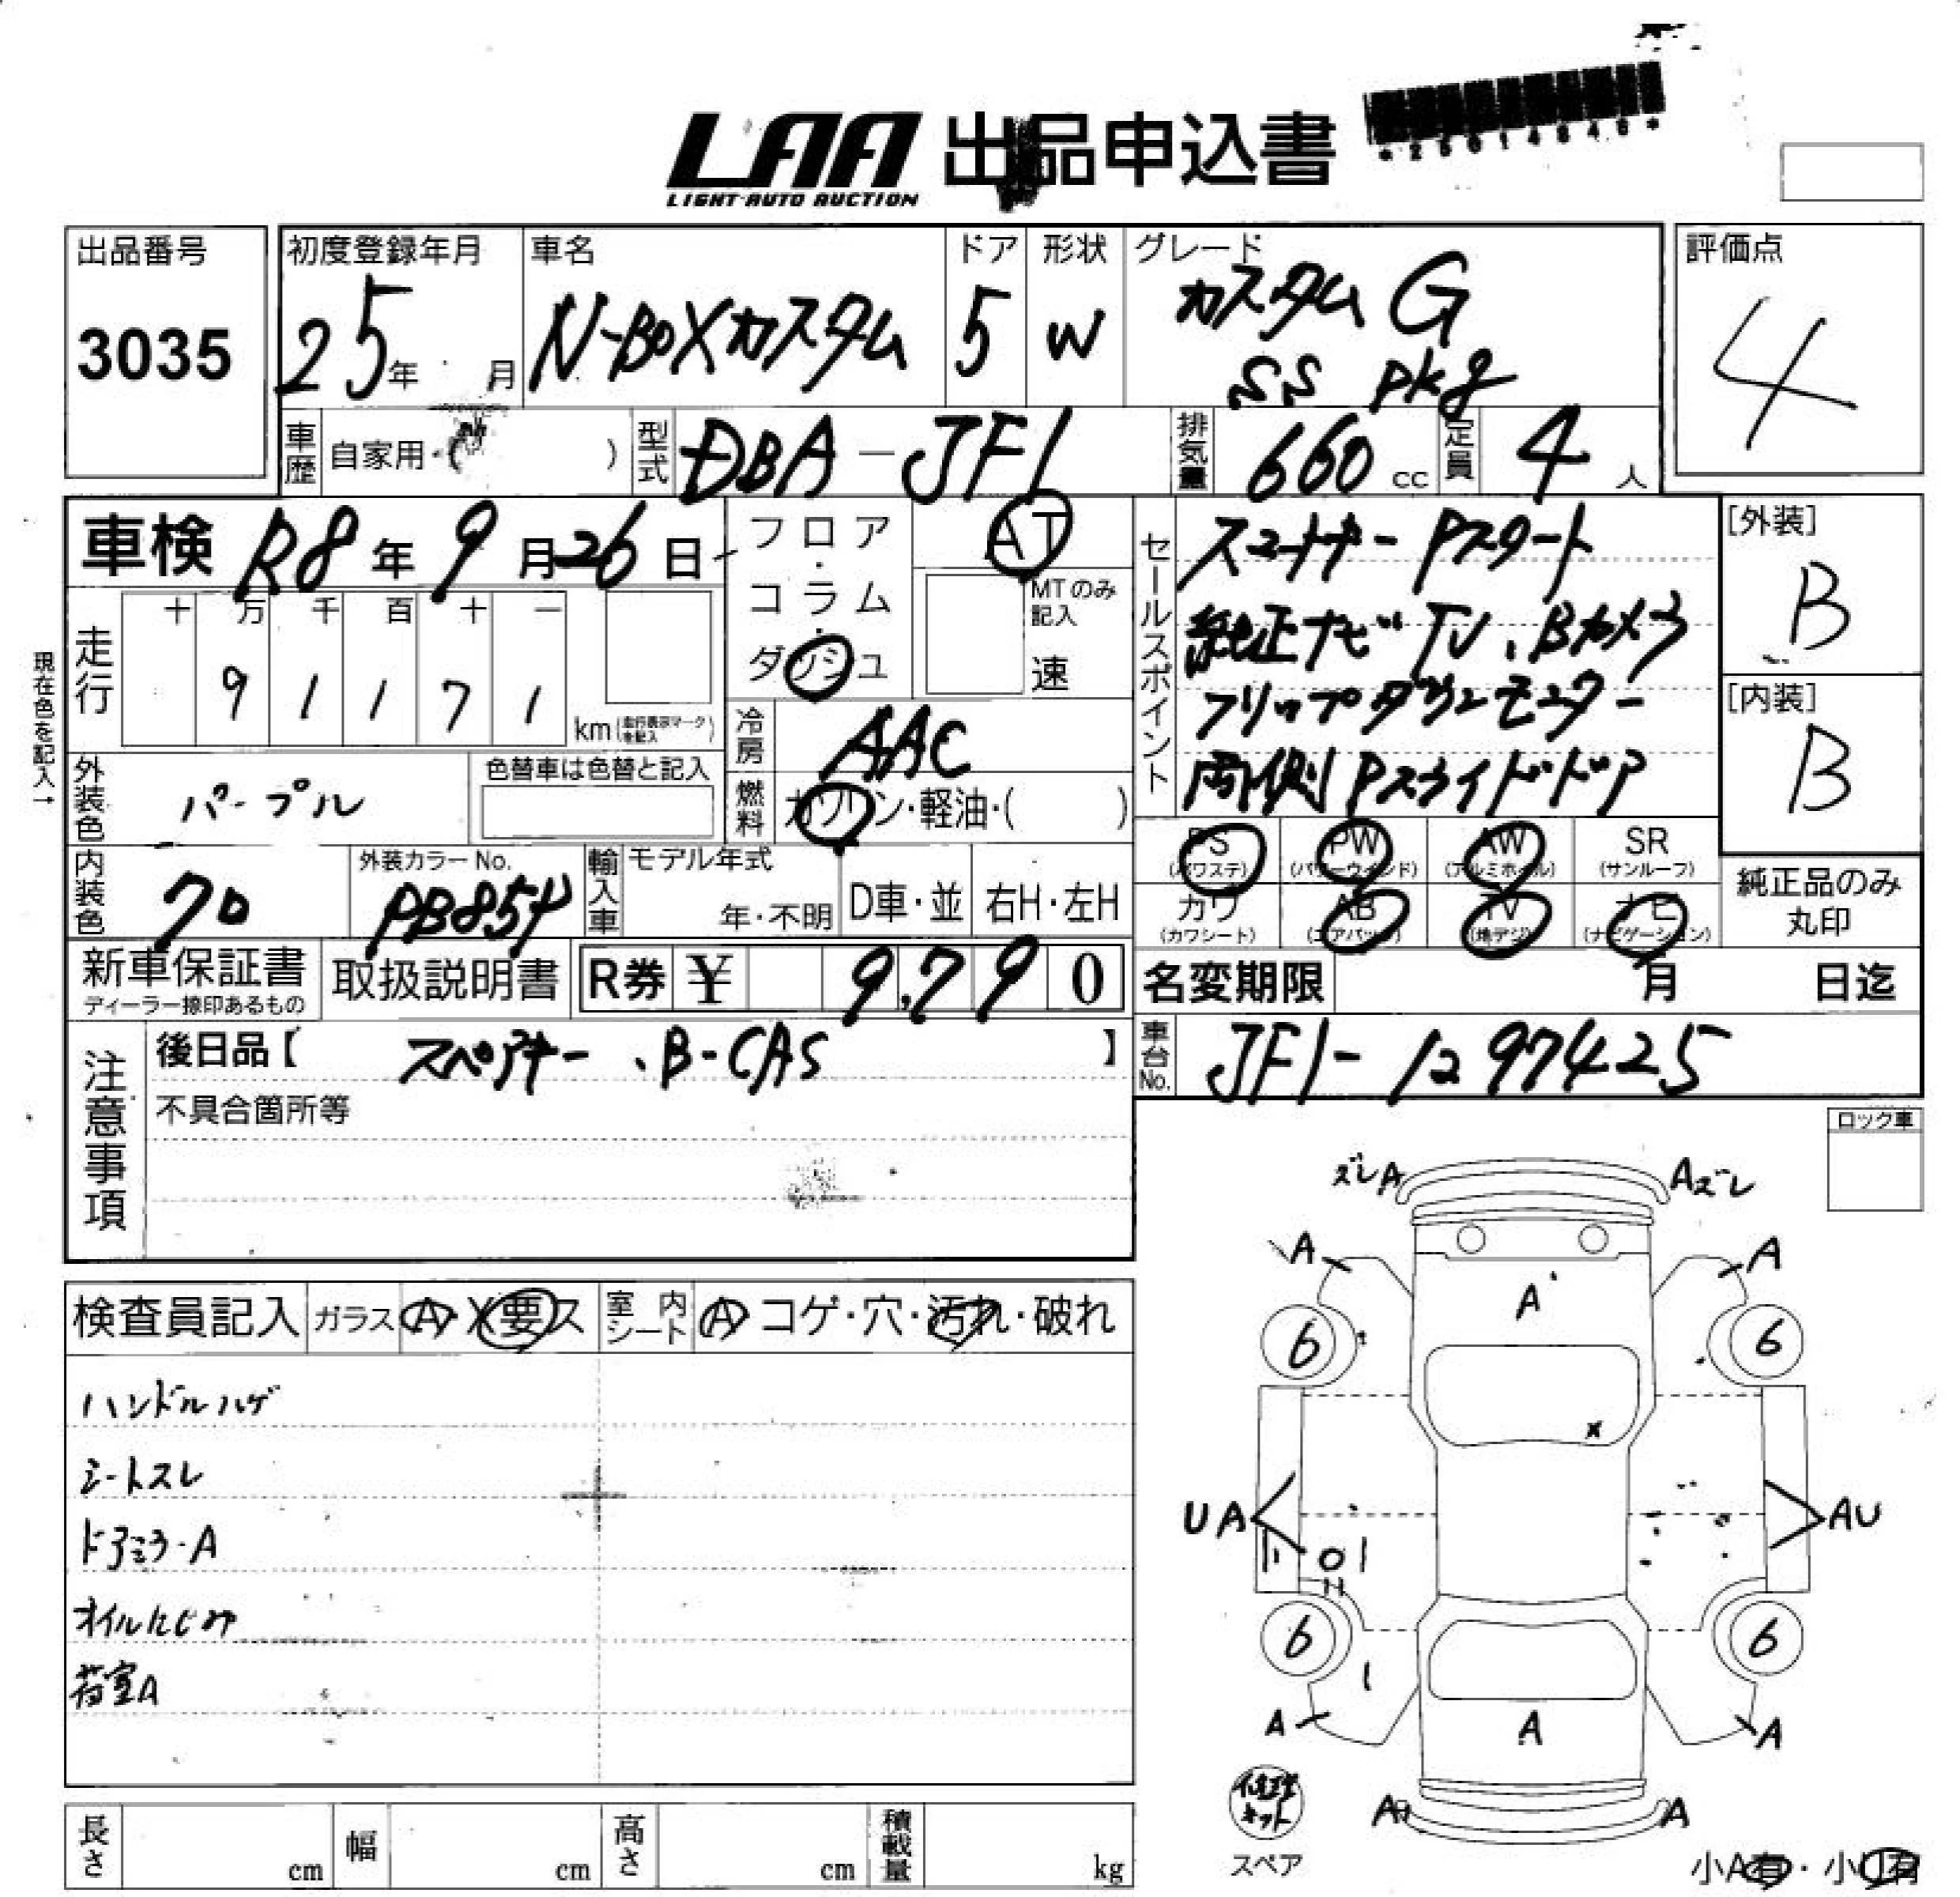 LAA 出品申込書
LIGHT AUTO AUCTION
出品番号
3035
初度登録年月
25年 月
車名
N-BOXカスタム
ドア
5
形状
W
グレード
カスタム G
SS pkg
評価点
4
車歴
自家用・( )
型式
DBA-JF1
排気量
660 cc
定員
4 人
車検 R8年 9月 26日
フロア・コラム・ダッシュ
AT
MTのみ記入
速
現在色を記入→
走行
十 万 千 百 十 一
9 1 1 7 1
km(走行表示マークを記入)
冷房
AAC
燃料
ガソリン・軽油・( )
外装色
パープル
色替車は色替と記入
内装色
クロ
外装カラーNo.
PB85P
輸入車
モデル年式
年・不明
D車・並
右H・左H
セールスポイント
スマートキー Pスタート
純正ナビ TV、Bカメラ
フリップダウンモニター
両側Pスライドドア
[外装]
B
[内装]
B
PS (パワステ)
PW (パワーウインド)
AW (アルミホイル)
SR (サンルーフ)
カワ (カワシート)
AB (エアバック)
TV (地デジ)
ナビ (ナビゲーション)
純正品のみ
丸印
新車保証書
ディーラー捺印あるもの
取扱説明書
R券 ¥ 9,790
名変期限 月 日迄
車台No.
JF1-1297425
注意事項
後日品【 スペアキー、B-CAS 】
不具合箇所等
ロック車
検査員記入
ガラス A・X要ス
室内シート A コゲ・穴・汚れ・破れ
ハンドルハゲ
シートスレ
ドアミラーA
オイルにじみ
荷室A
ズレA
Aズレ
A
A
A
6
6
x
UA
AU
6
6
A
A
A
修理キット
スペア
A
A
小A有・小U有
長さ cm
幅 cm
高さ cm
積載量 kg